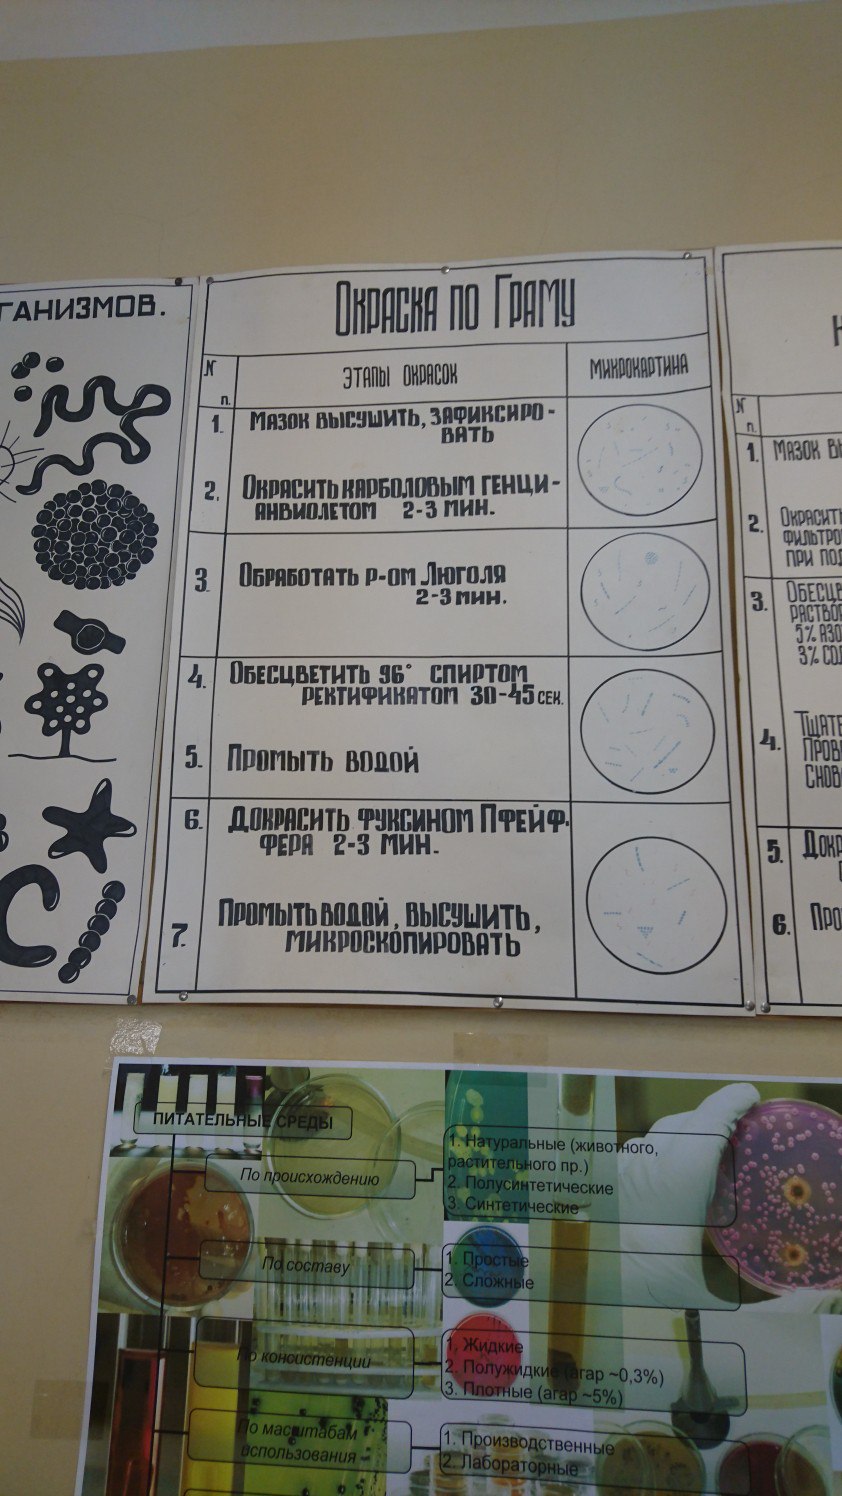 ГАНИЗМОВ.
ОКРАСКА ПО ГРАМУ
N п.
ЭТАПЫ ОКРАСОК
МИКРОКАРТИНА
1. МАЗОК ВЫСУШИТЬ, ЗАФИКСИРО-
ВАТЬ
2. ОКРАСИТЬ КАРБОЛОВЫМ ГЕНЦИ-
АНВИОЛЕТОМ 2-3 МИН.
3. ОБРАБОТАТЬ Р-ОМ ЛЮГОЛЯ
2-3 МИН.
4. ОБЕСЦВЕТИТЬ 96° СПИРТОМ
РЕКТИФИКАТОМ 30-45 СЕК.
5. ПРОМЫТЬ ВОДОЙ
6. ДОКРАСИТЬ ФУКСИНОМ ПФЕЙФ-
ФЕРА 2-3 МИН.
7. ПРОМЫТЬ ВОДОЙ, ВЫСУШИТЬ,
МИКРОСКОПИРОВАТЬ
N п.
1. МАЗОК ВЫ
2. ОКРАСИТЬ
ФИЛЬТРО
ПРИ ПОД
3. ОБЕСЦВ
РАСТВОР
5% АЗО
3% СОЛ
4. ТЩАТЕ
ПРОМ
СНОВ
5. ДОКР
6. ПРО
ПИТАТЕЛЬНЫЕ СРЕДЫ
По происхождению
1. Натуральные (животного,
растительного пр.)
2. Полусинтетические
3. Синтетические
По составу
1. Простые
2. Сложные
По консистенций
1. Жидкие
2. Полужидкие (агар ~0,3%)
3. Плотные (агар ~5%)
По масштабам
использования
1. Производственные
2. Лабораторные